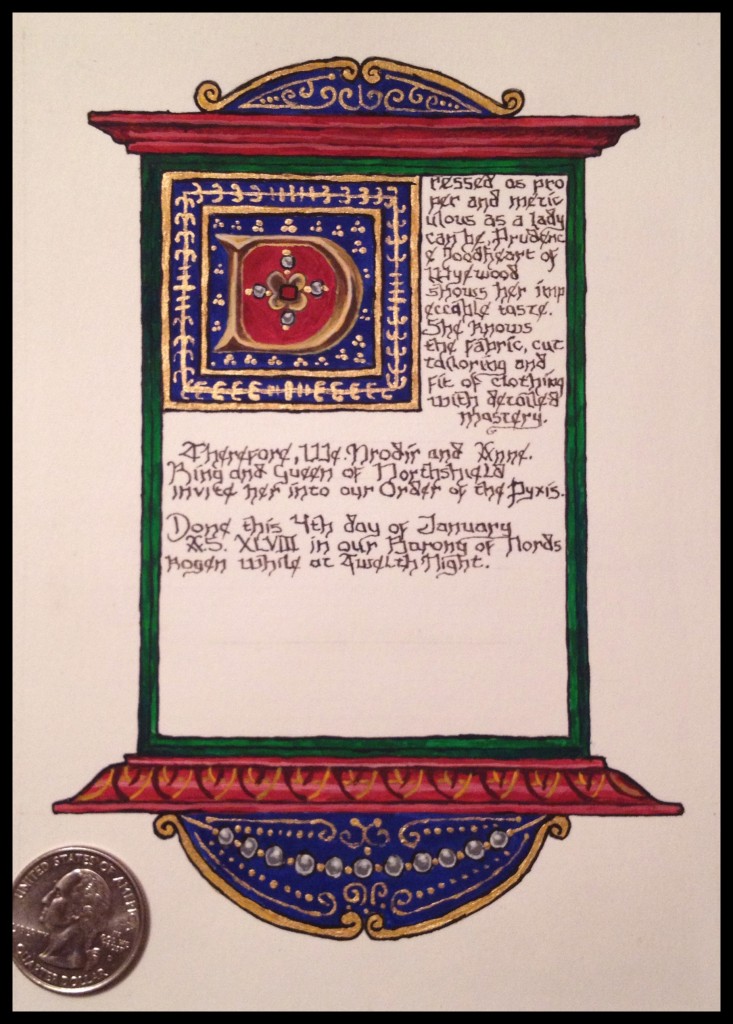 Dressed as pro
per and metic
ulous as a lady
can be, Prudenc
e Goodheart of
Wyewood
shows her imp
eccable taste.
She knows
the fabric, cut
tailoring and
fit of clothing
with detailed
mastery.
Therefore, We. and Anne.
King and Queen of Northshield
invite her into our Order of the Pyxis.
Done this 4th day of January
A.S. XLVIII in our Barony of Nords
kogen while at Twelfth Night.
UNITED STATES OF AMERICA
LIBERTY
IN GOD WE TRUST
QUARTER DOLLAR